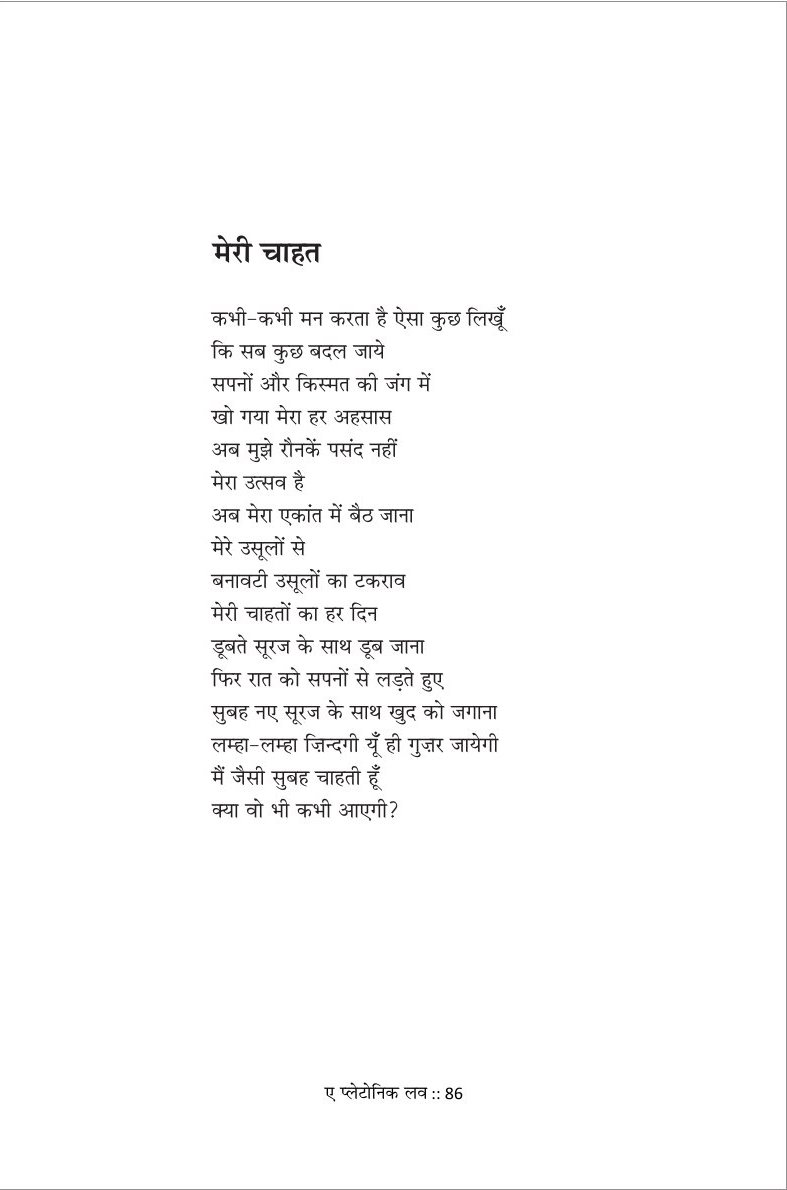 मेरी चाहत
कभी-कभी मन करता है ऐसा कुछ लिखूँ
कि सब कुछ बदल जाये
सपनों और किस्मत की जंग में
खो गया मेरा हर अहसास
अब मुझे रौनकें पसंद नहीं
मेरा उत्सव है
अब मेरा एकांत में बैठ जाना
मेरे उसूलों से
बनावटी उसूलों का टकराव
मेरी चाहतों का हर दिन
डूबते सूरज के साथ डूब जाना
फिर रात को सपनों से लड़ते हुए
सुबह नए सूरज के साथ खुद को जगाना
लम्हा-लम्हा ज़िन्दगी यूँ ही गुज़र जायेगी
मैं जैसी सुबह चाहती हूँ
क्या वो भी कभी आएगी?
ए प्लेटोनिक लव :: 86